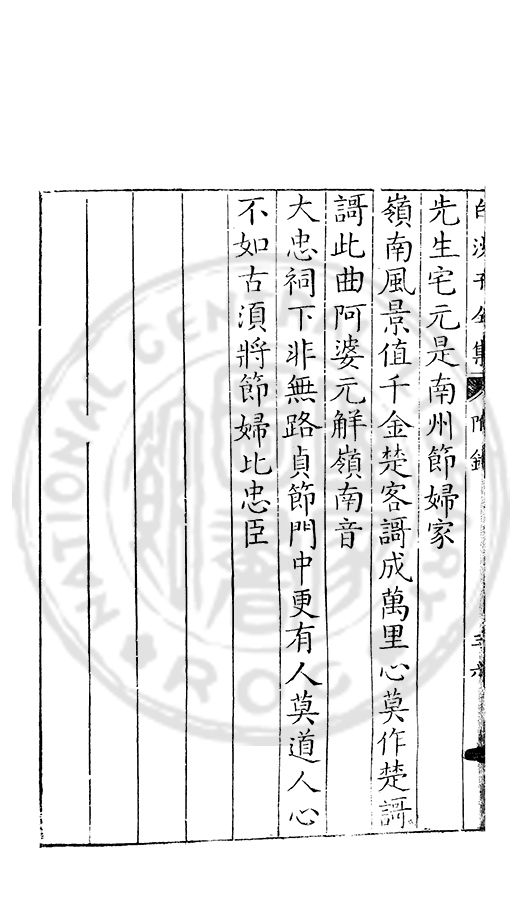 白沙子全集 附錄
先生宅元是南州節婦家
嶺南風景值千金楚客謌成萬里心莫作楚謌
謌此曲阿婆元解嶺南音
大忠祠下非無路貞節門中更有人莫道人心
不如古須將節婦比忠臣
NATIONAL CENTRAL
ROC